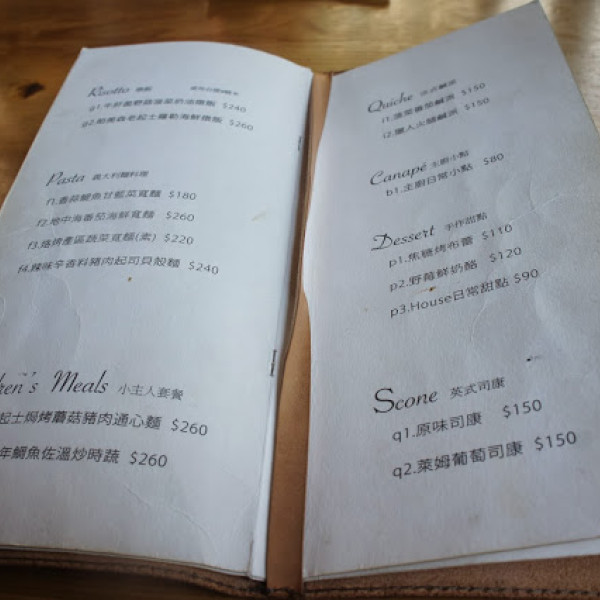 Risotto 燉飯
g1.牛肝蕈野菇溫泉奶油燉飯 $240
g2.帕美森老起士羅勒海鮮燉飯 $260
Pasta 義大利麵料理
f1.香蒜鯷魚甘藍菜寬麵 $180
f2.地中海番茄海鮮寬麵 $260
f3.焙烤產區蔬菜寬麵(素) $220
f4.辣味辛香料豬肉起司貝殼麵 $240
ren's Meals 小主人套餐
起士焗烤蘑菇豬肉通心麵 $260
年鯛魚佐溫炒時蔬 $260
Quiche 法式鹹派
i1.菠菜番茄鹹派 $150
i2.獵人火腿鹹派 $150
Canapé 主廚小點
b1.主廚日常小點 $80
Dessert 手作甜點
p1.焦糖烤布蕾 $110
p2.野莓鮮奶酪 $120
p3.House日常甜點 $90
Scone 英式司康
q1.原味司康 $150
q2.萊姆葡萄司康 $150